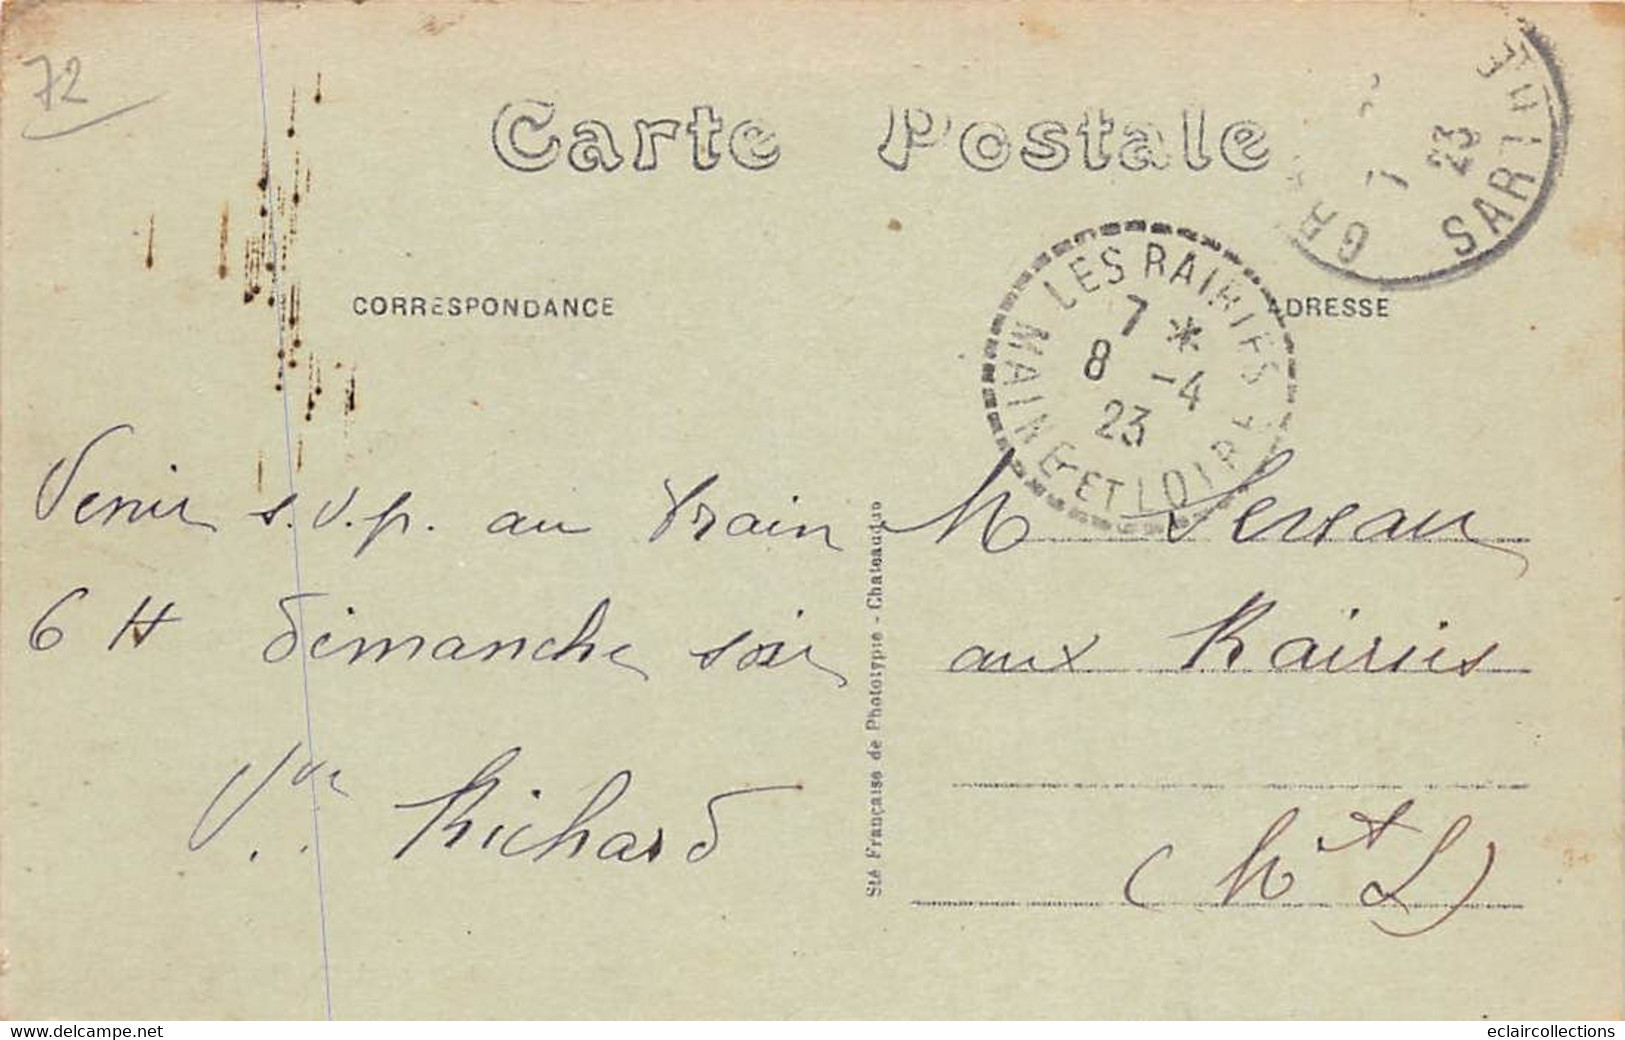 72
Carte Postale
SARTHE
7
23
GR
LES RAIRIES
7 *
8 -4
23
MAINE-ET-LOIRE
CORRESPONDANCE
ADRESSE
Venir s.v.p. au train
6 H dimanche soir
Vve Richard
Sté Française de Phototypie - Chateaudun
M
aux Rairies
(M et L)
www.delcampe.net
eclaircollections